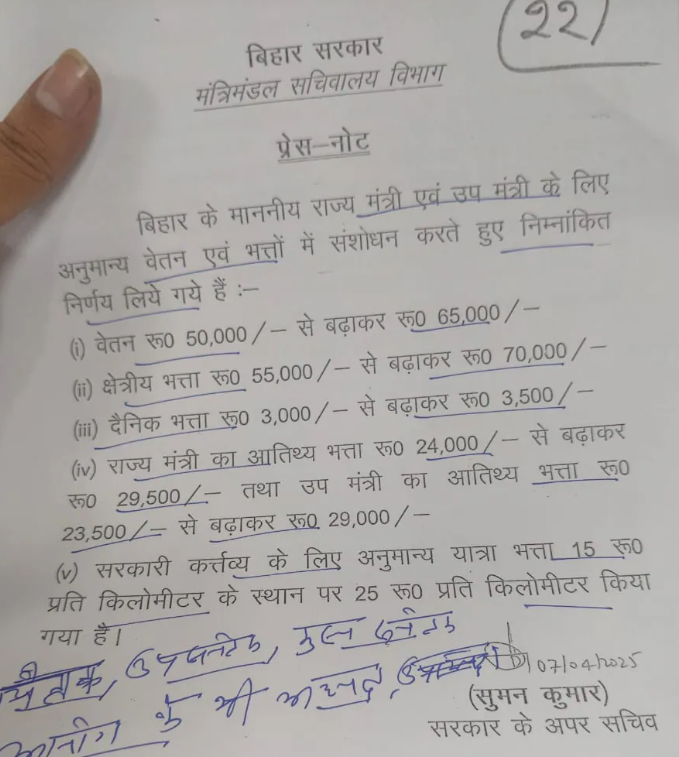 22
बिहार सरकार
मंत्रिमंडल सचिवालय विभाग
प्रेस–नोट
बिहार के माननीय राज्य मंत्री एवं उप मंत्री के लिए
अनुमान्य वेतन एवं भत्तों में संशोधन करते हुए निम्नांकित
निर्णय लिये गये हैं :–
(i) वेतन रू0 50,000/– से बढ़ाकर रू0 65,000/–
(ii) क्षेत्रीय भत्ता रू0 55,000/– से बढ़ाकर रू0 70,000/–
(iii) दैनिक भत्ता रू0 3,000/– से बढ़ाकर रू0 3,500/–
(iv) राज्य मंत्री का आतिथ्य भत्ता रू0 24,000/– से बढ़ाकर
रू0 29,500/– तथा उप मंत्री का आतिथ्य भत्ता रू0
23,500/– से बढ़ाकर रू0 29,000/–
(v) सरकारी कर्त्तव्य के लिए अनुमान्य यात्रा भत्ता 15 रू0
प्रति किलोमीटर के स्थान पर 25 रू0 प्रति किलोमीटर किया
गया है।
07/04/2025
के भी
(सुमन कुमार)
सरकार के अपर सचिव